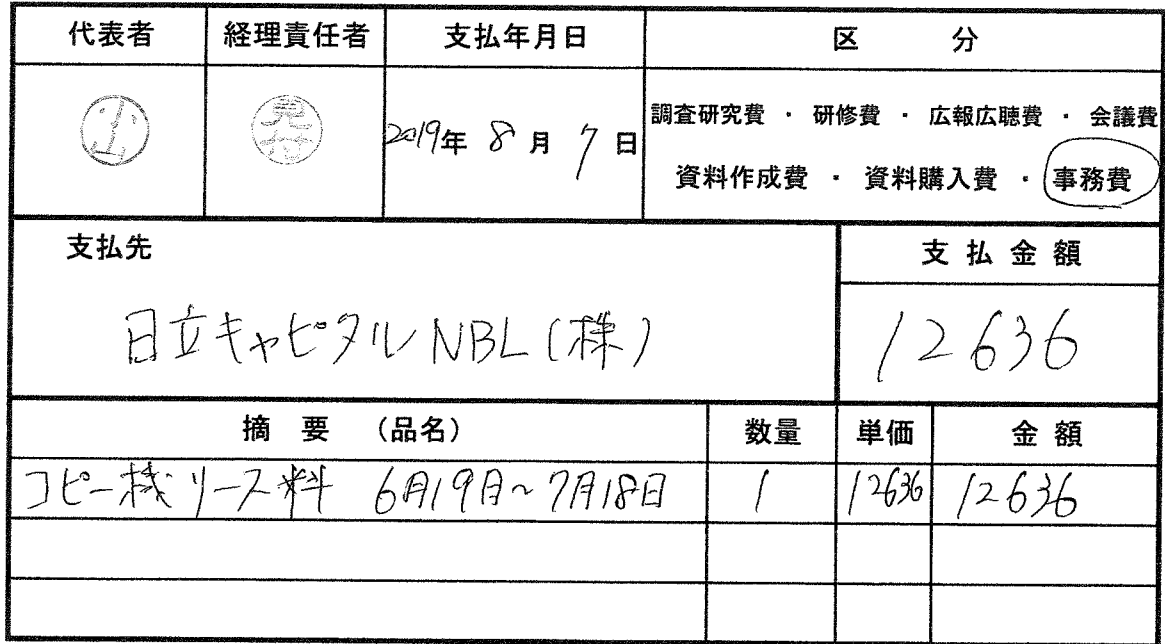 代表者 経理責任者 支払年月日 区 分
小山 見付 2019年 8月 7日
調査研究費 ・ 研修費 ・ 広報広聴費 ・ 会議費
資料作成費 ・ 資料購入費 ・ 事務費
支払先 支払金額
日立キャピタルNBL(株) 12636
摘 要 (品名) 数量 単価 金 額
コピー機リース料 6月19日~7月18日 1 12636 12636